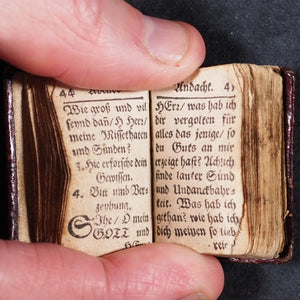 44 Abends
Wie groß und vil
seynd dañ / O Herr /
meine Missethaten
und Sünden?
3. Hie erforsche dein
Gewissen.
4. Bitt umb Ver-
zeyhung.
Sihe / O mein
GOTT und
Andacht. 45
HErr / was hab ich
dir vergolten für
alles das jenige / so
du Guts an mir
erzeigt hast? Ach ich
finde lauter Sünd
und Undanckbahr-
keit. Was hab ich
gethan? wie hab ich
dich meinen so lieb-
rei-